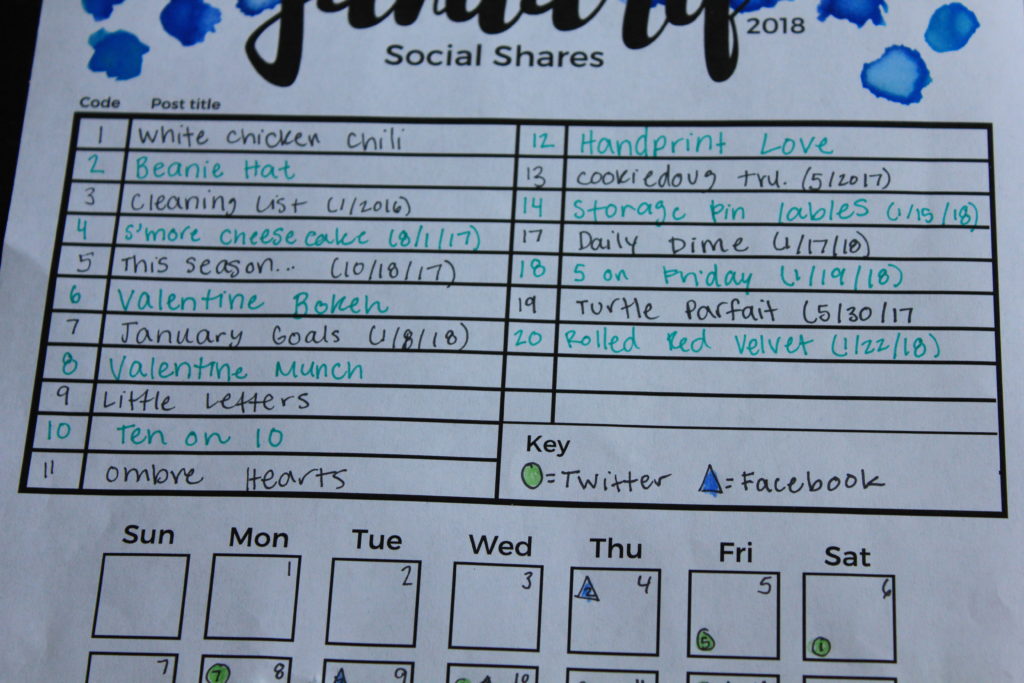 January
2018
Social Shares
Code Post title
1 White chicken chili
2 Beanie Hat
3 Cleaning List (1/2016)
4 S'more cheesecake (8/1/17)
5 This season... (10/18/17)
6 Valentine Bokeh
7 January Goals (1/8/18)
8 Valentine Munch
9 Little Letters
10 Ten on 10
11 ombre Hearts
12 Handprint Love
13 cookiedoug tru. (5/2017)
14 Storage bin lables (1/15/18)
17 Daily Dime (1/17/18)
18 5 on Friday (1/19/18)
19 Turtle Parfait (5/30/17
20 Rolled Red Velvet (1/22/18)
Key
=Twitter =Facebook
Sun Mon Tue Wed Thu Fri Sat
1 2 3 2 4 5 5 6 1
7 7 8 9 10